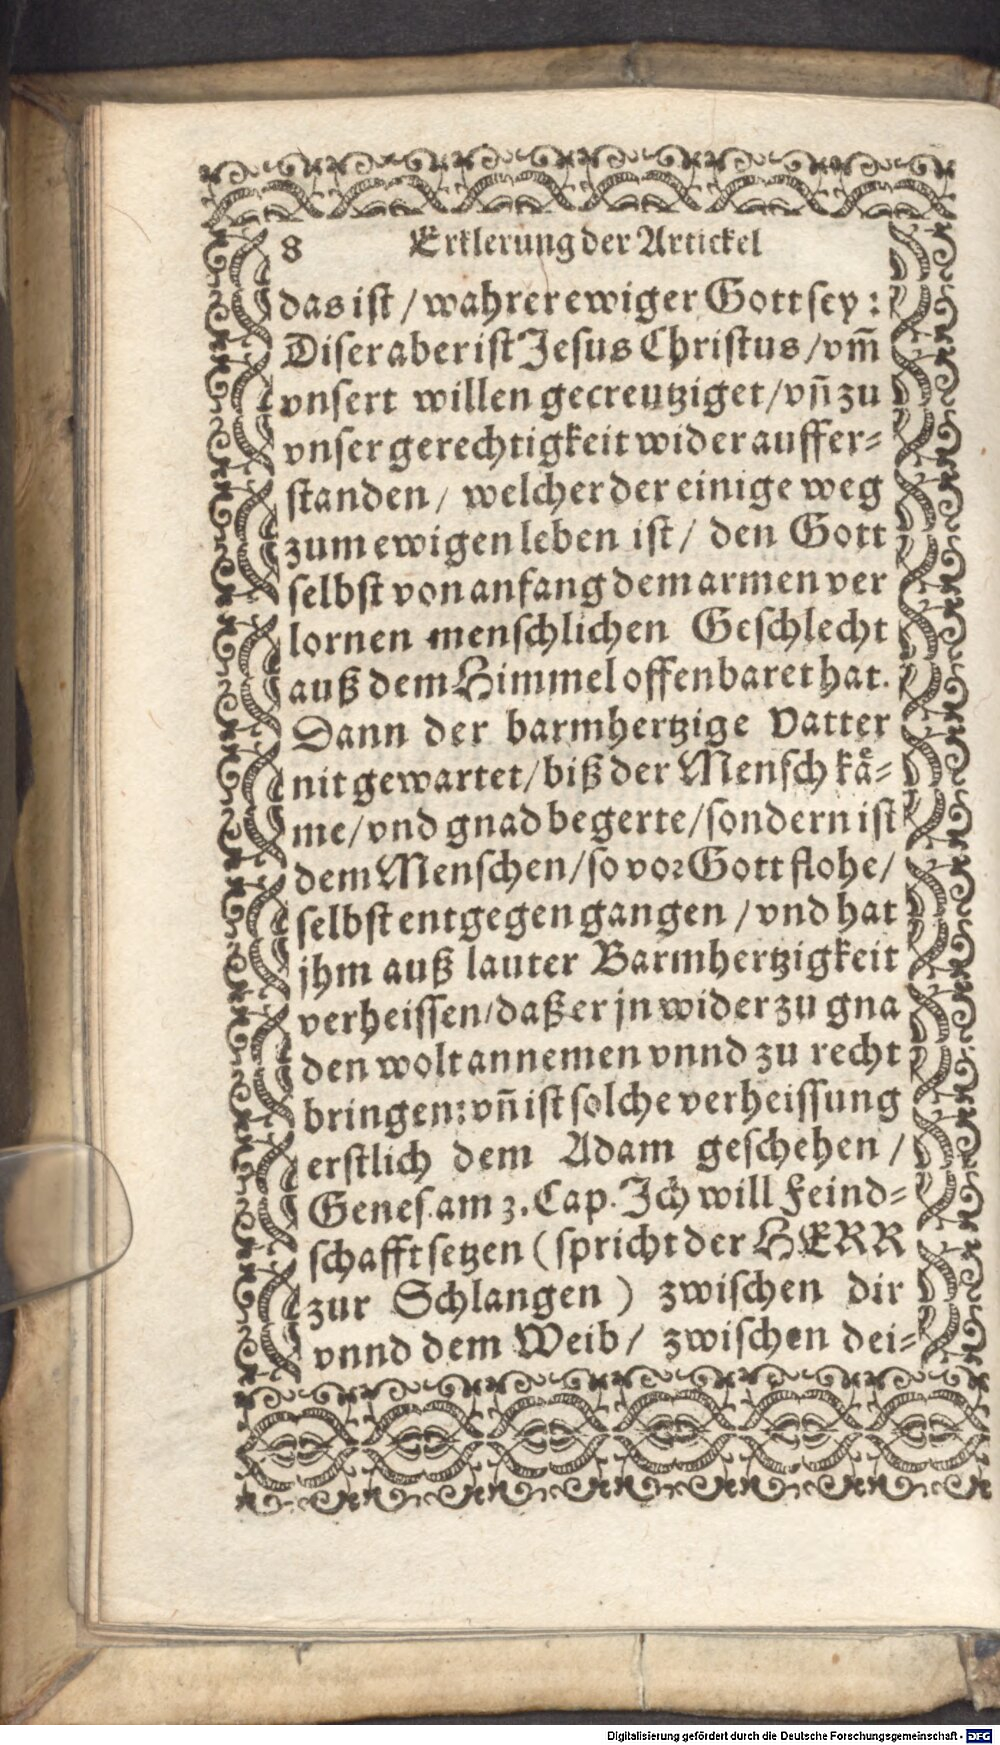 8 Erklerung der Artickel
das ist / wahrer ewiger Gott sey :
Diser aber ist Jesus Christus / vm̃
vnsert willen gecreutziget / vñ zu
vnser gerechtigkeit wider auffer-
standen / welcher der einige weg
zum ewigen leben ist / den Gott
selbst von anfang dem armen ver
lornen menschlichen Geschlecht
auß dem Himmel offenbaret hat.
Dann der barmhertzige Vatter
nit gewartet / biß der Mensch kaͤ-
me / vnd gnad begerte / sondern ist
dem Menschen / so vor Gott flohe /
selbst entgegen gangen / vnd hat
jhm auß lauter Barmhertzigkeit
verheissen / daß er jn wider zu gna
den wolt annemen vnnd zu recht
bringen: vñ ist solche verheissung
erstlich dem Adam geschehen /
Genes. am 3. Cap. Ich will Feind-
schafft setzen ( spricht der HERR
zur Schlangen ) zwischen dir
vnnd dem Weib / zwischen dei-
Digitalisierung gefördert durch die Deutsche Forschungsgemeinschaft - DFG